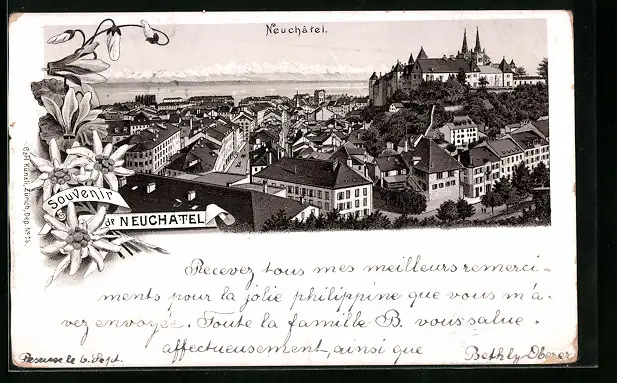 Neuchâtel.
Carl Künzli, Zürich, Dep. No
Souvenir
de NEUCHATEL
Recevez tous mes meilleurs remerci-
ments pour la jolie philippine que vous m'a-
vez envoyée. Toute la famille B. vous salue
affectueusement, ainsi que Bethly Oberer
Peseux le 6. Sept.